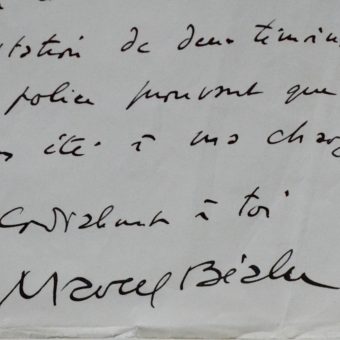 tation de deux témoins
police prouvant que
été à ma charg
Cordialement à toi
Marcel Béalu